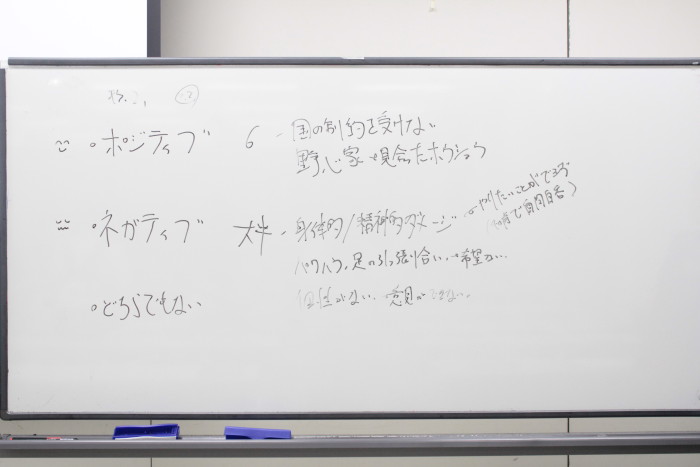 ・ポジティブ 6 ・国の制約を受けない
野心家 現会ったホクショウ
・ネガティブ 大半 ・身体的/精神的ダメージ ・やりたいことができず
で自問自答)
パワハラ、足の引っ張り合い、希望ない..
・どちらでもない 個性がない 意見が